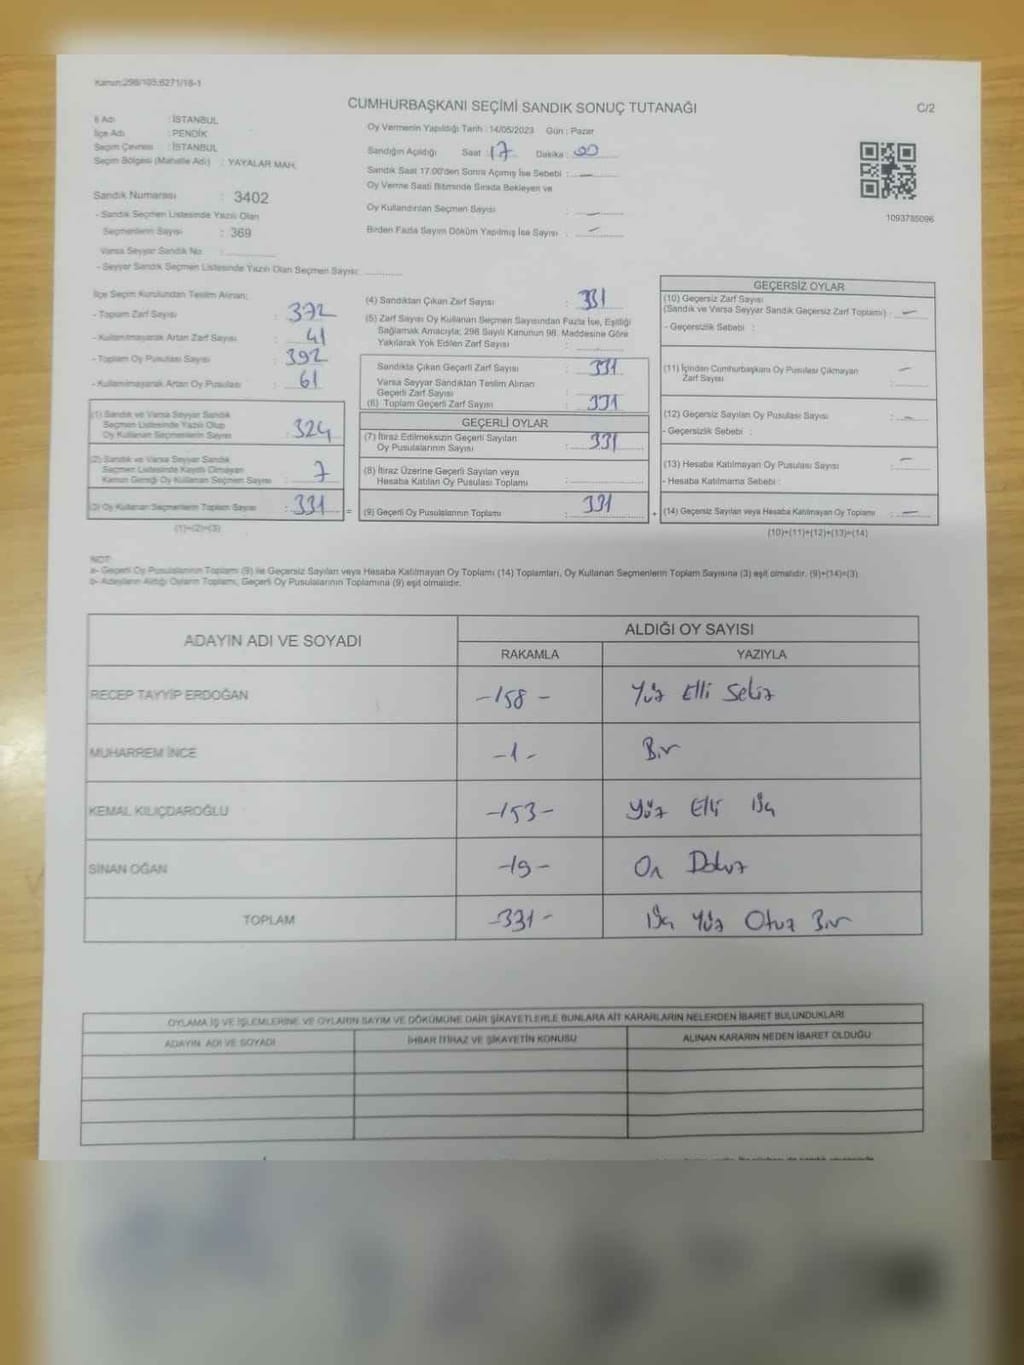 Kanun:298/105;6271/18-1
CUMHURBAŞKANI SEÇİMİ SANDIK SONUÇ TUTANAĞI
C/2
İl Adı : İSTANBUL
İlçe Adı : PENDİK
Seçim Çevresi : İSTANBUL
Seçim Bölgesi (Mahalle Adı) : YAYALAR MAH.
Sandık Numarası : 3402
- Sandık Seçmen Listesinde Yazılı Olan
Seçmenlerin Sayısı : 369
Varsa Seyyar Sandık No :
- Seyyar Sandık Seçmen Listesinde Yazılı Olan Seçmen Sayısı:
Oy Vermenin Yapıldığı Tarih : 14/05/2023 Gün : Pazar
Sandığın Açıldığı Saat : 17 Dakika : 00
Sandık Saat 17.00'den Sonra Açılmış İse Sebebi : —
Oy Verme Saati Bitiminde Sırada Bekleyen ve
Oy Kullandırılan Seçmen Sayısı : —
Birden Fazla Sayım Döküm Yapılmış İse Sayısı : —
1093785096
İlçe Seçim Kurulundan Teslim Alınan;
- Toplam Zarf Sayısı : 372
- Kullanılmayarak Artan Zarf Sayısı : 41
- Toplam Oy Pusulası Sayısı : 392
- Kullanılmayarak Artan Oy Pusulası : 61
(1) Sandık ve Varsa Seyyar Sandık
Seçmen Listesinde Yazılı Olup
Oy Kullanan Seçmenlerin Sayısı : 324
(2) Sandık ve Varsa Seyyar Sandık
Seçmen Listesinde Kayıtlı Olmayan
Kanun Gereği Oy Kullanan Seçmen Sayısı : 7
(3) Oy Kullanan Seçmenlerin Toplam Sayısı : 331 =
(1)+(2)=(3)
(4) Sandıktan Çıkan Zarf Sayısı : 331
(5) Zarf Sayısı Oy Kullanan Seçmen Sayısından Fazla İse, Eşitliği
Sağlamak Amacıyla; 298 Sayılı Kanunun 98. Maddesine Göre
Yakılarak Yok Edilen Zarf Sayısı :
Sandıkta Çıkan Geçerli Zarf Sayısı : 331
Varsa Seyyar Sandıktan Teslim Alınan
Geçerli Zarf Sayısı :
(6) Toplam Geçerli Zarf Sayısı : 331
GEÇERLİ OYLAR
(7) İtiraz Edilmeksizin Geçerli Sayılan
Oy Pusulalarının Sayısı : 331
(8) İtiraz Üzerine Geçerli Sayılan veya
Hesaba Katılan Oy Pusulası Toplamı :
(9) Geçerli Oy Pusulalarının Toplamı : 331 +
GEÇERSİZ OYLAR
(10) Geçersiz Zarf Sayısı
(Sandık ve Varsa Seyyar Sandık Geçersiz Zarf Toplamı) : —
- Geçersizlik Sebebi :
(11) İçinden Cumhurbaşkanı Oy Pusulası Çıkmayan
Zarf Sayısı : —
(12) Geçersiz Sayılan Oy Pusulası Sayısı : —
- Geçersizlik Sebebi :
(13) Hesaba Katılmayan Oy Pusulası Sayısı : —
- Hesaba Katılmama Sebebi :
(14) Geçersiz Sayılan veya Hesaba Katılmayan Oy Toplamı : —
(10)+(11)+(12)+(13)=(14)
NOT:
a- Geçerli Oy Pusulalarının Toplamı (9) ile Geçersiz Sayılan veya Hesaba Katılmayan Oy Toplamı (14) Toplamları, Oy Kullanan Seçmenlerin Toplam Sayısına (3) eşit olmalıdır. (9)+(14)=(3)
b- Adayların Aldığı Oyların Toplamı, Geçerli Oy Pusulalarının Toplamına (9) eşit olmalıdır.
ADAYIN ADI VE SOYADI
ALDIĞI OY SAYISI
RAKAMLA YAZIYLA
RECEP TAYYİP ERDOĞAN -158- Yüz Elli Sekiz
MUHARREM İNCE -1- Bir
KEMAL KILIÇDAROĞLU -153- Yüz Elli Üç
SİNAN OĞAN -19- On Dokuz
TOPLAM -331- Üç Yüz Otuz Bir
OYLAMA İŞ VE İŞLEMLERİNE VE OYLARIN SAYIM VE DÖKÜMÜNE DAİR ŞİKAYETLERLE BUNLARA AİT KARARLARIN NELERDEN İBARET BULUNDUKLARI
ADAYIN ADI VE SOYADI İHBAR İTİRAZ VE ŞİKAYETİN KONUSU ALINAN KARARIN NEDEN İBARET OLDUĞU